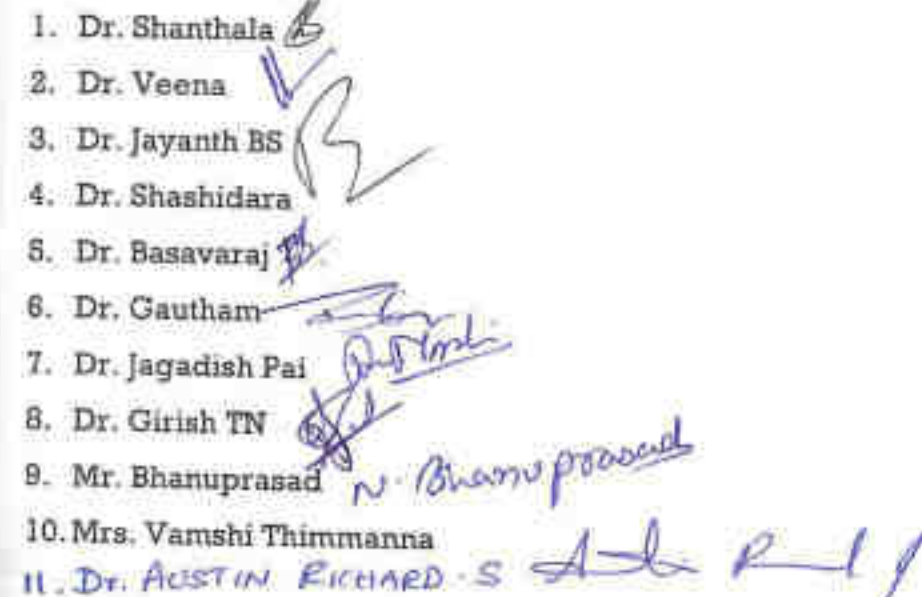 1. Dr. Shanthala
2. Dr. Veena
3. Dr. Jayanth BS
4. Dr. Shashidara
5. Dr. Basavaraj
6. Dr. Gautham
7. Dr. Jagadish Pai
8. Dr. Girish TN
9. Mr. Bhanuprasad N. Bhanuprasad
10. Mrs. Vamshi Thimmanna
11. Dr. AUSTIN RICHARD. S